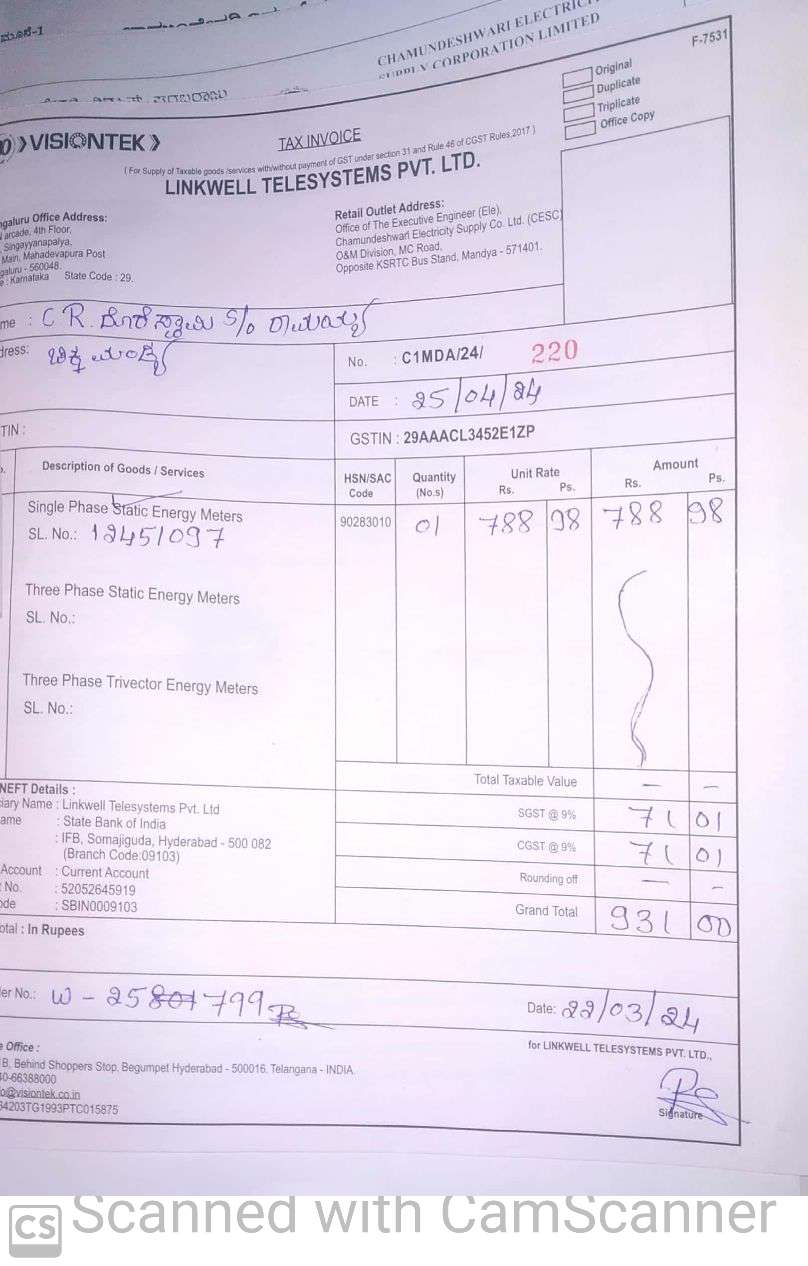 CHAMUNDESHWARI ELECTRICI
SUPPLY CORPORATION LIMITED
F-7531
Original
Duplicate
Triplicate
Office Copy
VISIONTEK
TAX INVOICE
( For Supply of Taxable goods /services with/without payment of GST under section 31 and Rule 46 of CGST Rules,2017 )
LINKWELL TELESYSTEMS PVT. LTD.
ngaluru Office Address:
arcade, 4th Floor,
Singayyanapalya,
Main, Mahadevapura Post
galuru - 560048.
e : Karnataka State Code : 29.
Retail Outlet Address:
Office of The Executive Engineer (Ele),
Chamundeshwari Electricity Supply Co. Ltd. (CESC)
O&M Division, MC Road,
Opposite KSRTC Bus Stand, Mandya - 571401.
me : C R. S/o
dress:
No. : C1MDA/24/ 220
DATE : 25/04/24
TIN :
GSTIN : 29AAACL3452E1ZP
Description of Goods / Services HSN/SAC Code Quantity (No.s) Unit Rate Rs. Ps. Amount Rs. Ps.
Single Phase Static Energy Meters 90283010 01 788 98 788 98
SL. No.: 12451097
Three Phase Static Energy Meters
SL. No.:
Three Phase Trivector Energy Meters
SL. No.:
Total Taxable Value — —
SGST @ 9% 71 01
CGST @ 9% 71 01
Rounding off — –
Grand Total 931 00
NEFT Details :
iary Name : Linkwell Telesystems Pvt. Ltd
ame : State Bank of India
: IFB, Somajiguda, Hyderabad - 500 082
(Branch Code:09103)
Account : Current Account
No. : 52052645919
ode : SBIN0009103
otal : In Rupees
er No.: W - 25801799
Date: 22/03/24
for LINKWELL TELESYSTEMS PVT. LTD.,
e Office :
B, Behind Shoppers Stop, Begumpet Hyderabad - 500016. Telangana - INDIA
40-66388000
o@visiontek.co.in
34203TG1993PTC015875
Signature
CS Scanned with CamScanner